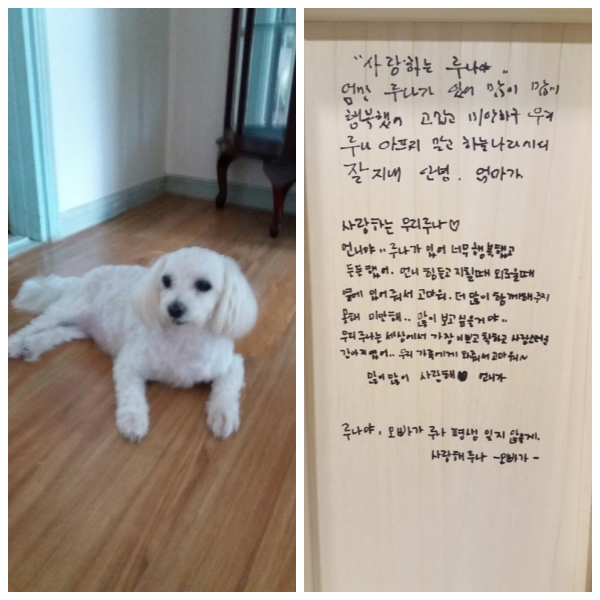 "사랑하는 루나야"
엄만 루나가 있어 많이 많이
행복했어 고맙고 미안하구 우리
루나 아프리 말고 하늘나라시디
잘 지내 안녕. 엄마가
사랑하는 우리루나♡
언니야.. 루나가 있어 너무 행복했고
든든했어. 언니 힘들고 지칠때 외로울때
옆에 있어줘서 고마워. 더 많이 함께해주지
못해 미안해.. 많이 보고 싶을거야..
우리 루나는 세상에서 가장 이쁘고 착하고 사랑스러운
강아지였어.. 우리 가족에게 와줘서 고마워~
많이많이 사랑해♥ 언니가
루나야, 오빠가 루나 평생 잊지 않을게.
사랑해 루나 -오빠가-